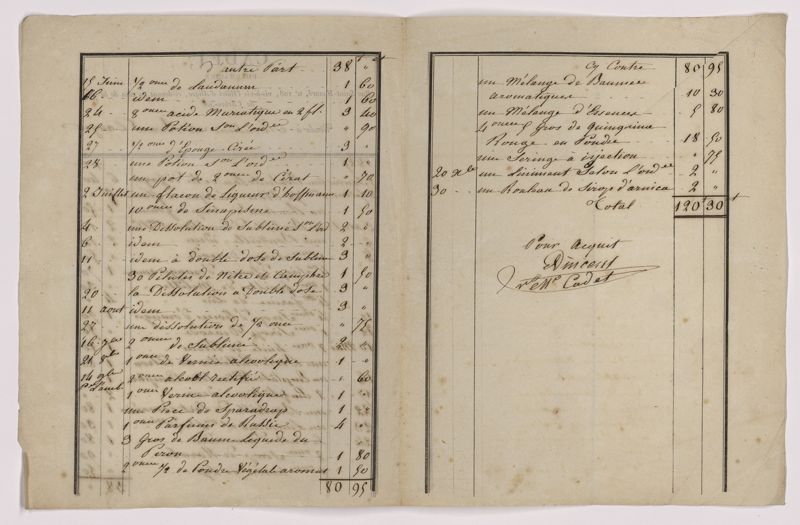 d'autre Part 38 "
15 Juin ½ once de Laudanum 1 60
16 idem 1 60
24 8 onces acide Muriatique en 2 fl. 3 40
25 une Potion s.on l'ord.ce " 90
27 ½ once d'Eponge Cirée 3 "
28 une Potion s.on l'ord.ce 1 "
un pot de 2 onces de Cérat " 70
2 Juillet un flacon de Liqueur d'hoffmann 1 10
10 onces de Sinapisme 1 50
4 une Dissolution de Sublimé s.on l'ord 2 "
6 idem 2 "
11 idem à double dose de Sublim 3 "
30 Pilules de Nitre et Camphre 1 50
20 la Dissolution a Double dose 3 "
11 aout idem 3 "
27 une dissolution de ½ once " 75
16 7bre 2 onces de Sublimé 2
21 8bre 1 once de Vernis alcoolique 1 "
14 9bre 2 onces alcool rectifié " 60
1 once Vernis alcoolique 1 "
une Piece de Sparadrap 1 "
1 once Parfums de 4 "
3 Gros de Baume Liquide du
Perou 1 80
2 onces ½ de Poudre Végétale aromat 1 50
80 95
Cy Contre 80 95
un Mélange de Baumes
aromatiques 10 30
un Mélange d'Essences 5 80
4 onces 5 Gros de Quinquina
Rouge en Poudre 18 50
une Seringe a injection " 75
20 Xbre un Liniment Selon l'ord.ce 2 "
30 un Rouleau de Sirop d'arnica 2 "
Total 120 30
Pour Acquit
Dincourt
Cadet